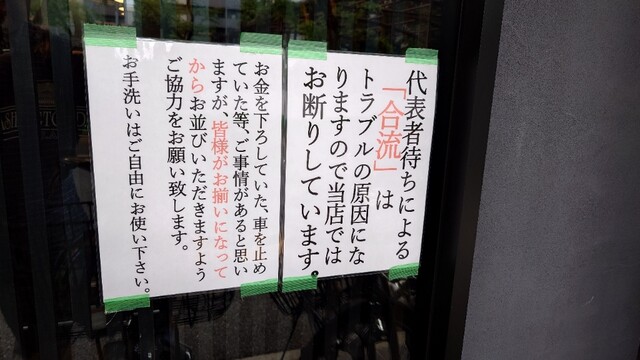 代表者待ちによる
「合流」は
トラブルの原因にな
りますので当店では
お断りしています。
お金を下ろしていた、車を止め
ていた等、ご事情があると思い
ますが、皆様がお揃いになって
からお並びいただきますよう
ご協力をお願い致します。
お手洗いはご自由にお使い下さい。